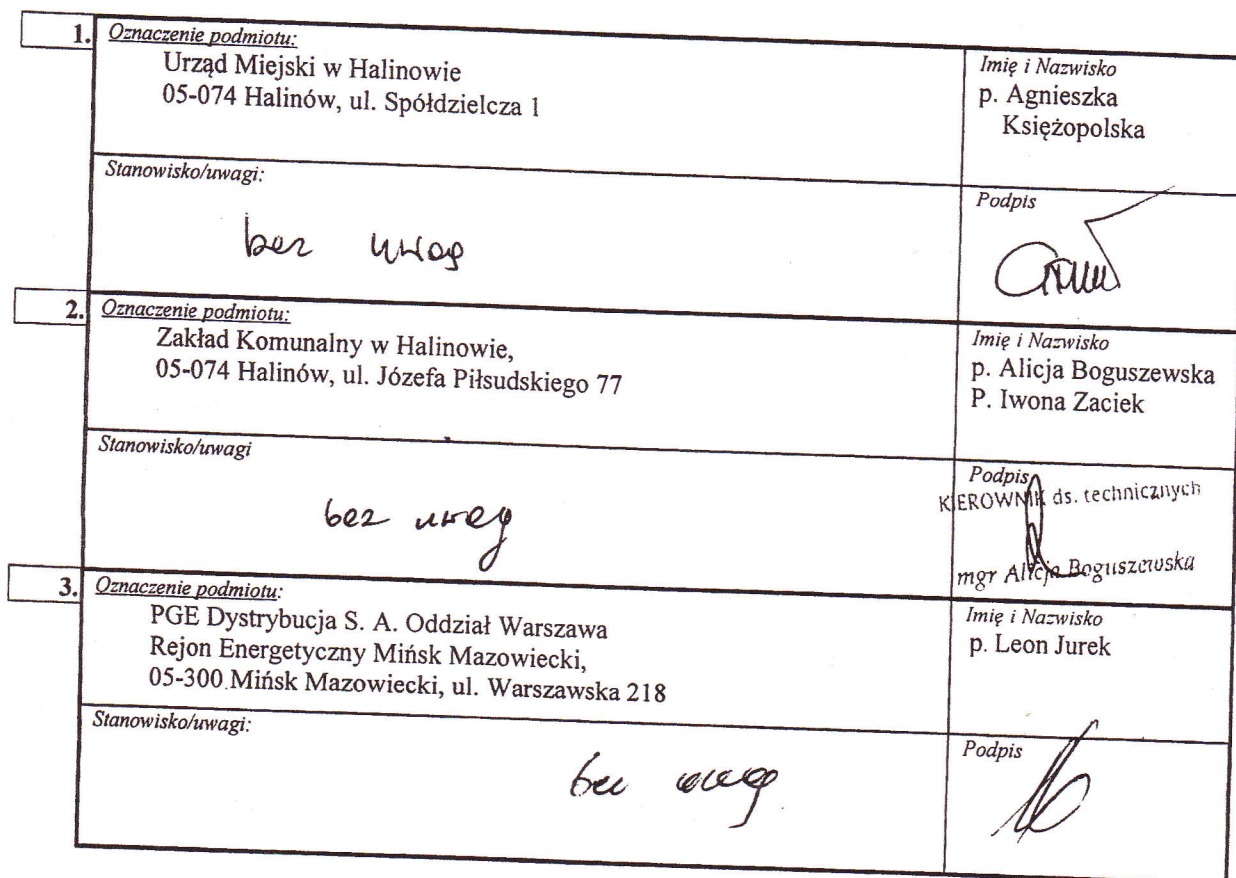 1. Oznaczenie podmiotu:
Urząd Miejski w Halinowie
05-074 Halinów, ul. Spółdzielcza 1
Imię i Nazwisko
p. Agnieszka
Księżopolska
Stanowisko/uwagi:
bez uwag
Podpis
2. Oznaczenie podmiotu:
Zakład Komunalny w Halinowie,
05-074 Halinów, ul. Józefa Piłsudskiego 77
Imię i Nazwisko
p. Alicja Boguszewska
P. Iwona Zaciek
Stanowisko/uwagi
bez uwag
Podpis
KIEROWNIK ds. technicznych
mgr Alicja Boguszewska
3. Oznaczenie podmiotu:
PGE Dystrybucja S. A. Oddział Warszawa
Rejon Energetyczny Mińsk Mazowiecki,
05-300 Mińsk Mazowiecki, ul. Warszawska 218
Imię i Nazwisko
p. Leon Jurek
Stanowisko/uwagi:
bez uwag
Podpis